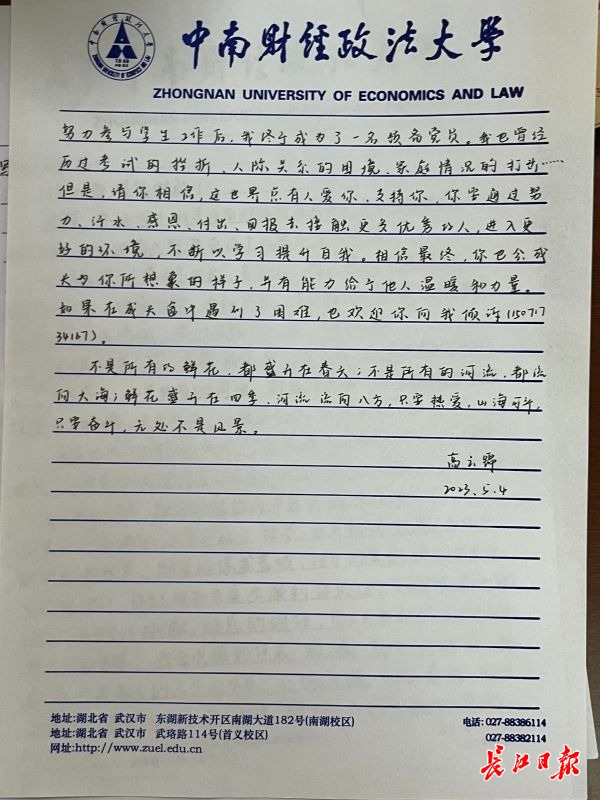 中南财经政法大学
1948
ZHONGNAN UNIVERSITY OF ECONOMICS AND LAW
努力参与学生工作后，我终于成为了一名预备党员。我也曾经
历过考试的挫折、人际关系的困境、家庭情况的打击……
但是，请你相信，这世界总有人爱你、支持你，你要通过努
力、汗水、感恩、付出、回报去接触更多优秀的人，进入更
好的环境，不断以学习提升自我。相信最终，你也会成
长为你所想象的样子，并有能力给予他人温暖和力量。
如果在成长途中遇到了困难，也欢迎你向我倾诉（150717
34167）。
不是所有的鲜花，都盛开在春天；不是所有的河流，都流
向大海；鲜花盛开在四季，河流流向八方，只要热爱，山海可平，
只要奋斗，无处不是风景。
2023.5.4
地址:湖北省 武汉市 东湖新技术开区南湖大道182号(南湖校区)
电话: 027-88386114
地址:湖北省 武汉市 武珞路114号(首义校区)
027-88382114
网址:http://www.zuel.edu.cn
长江日报